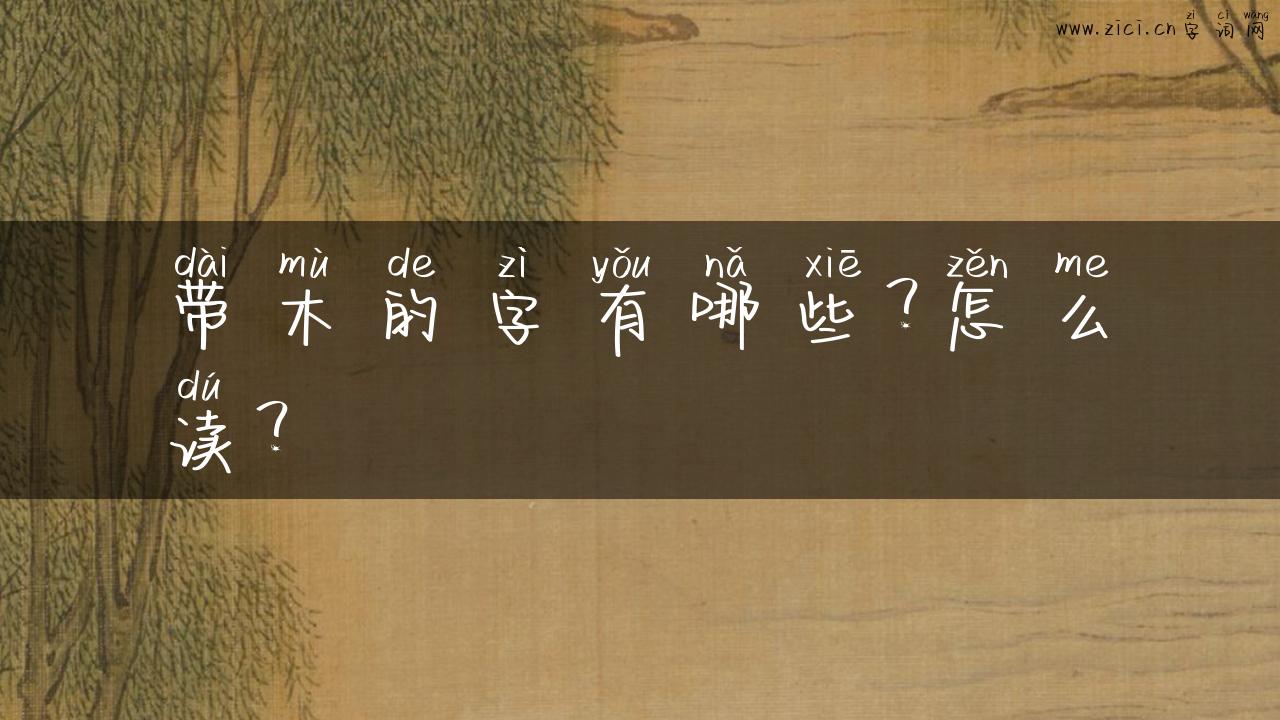 zì cí wǎng
www.zici.cn字词网
dài mù de zì yǒu nǎ xiē zěn me
带木的字有哪些？怎么
dú
读？